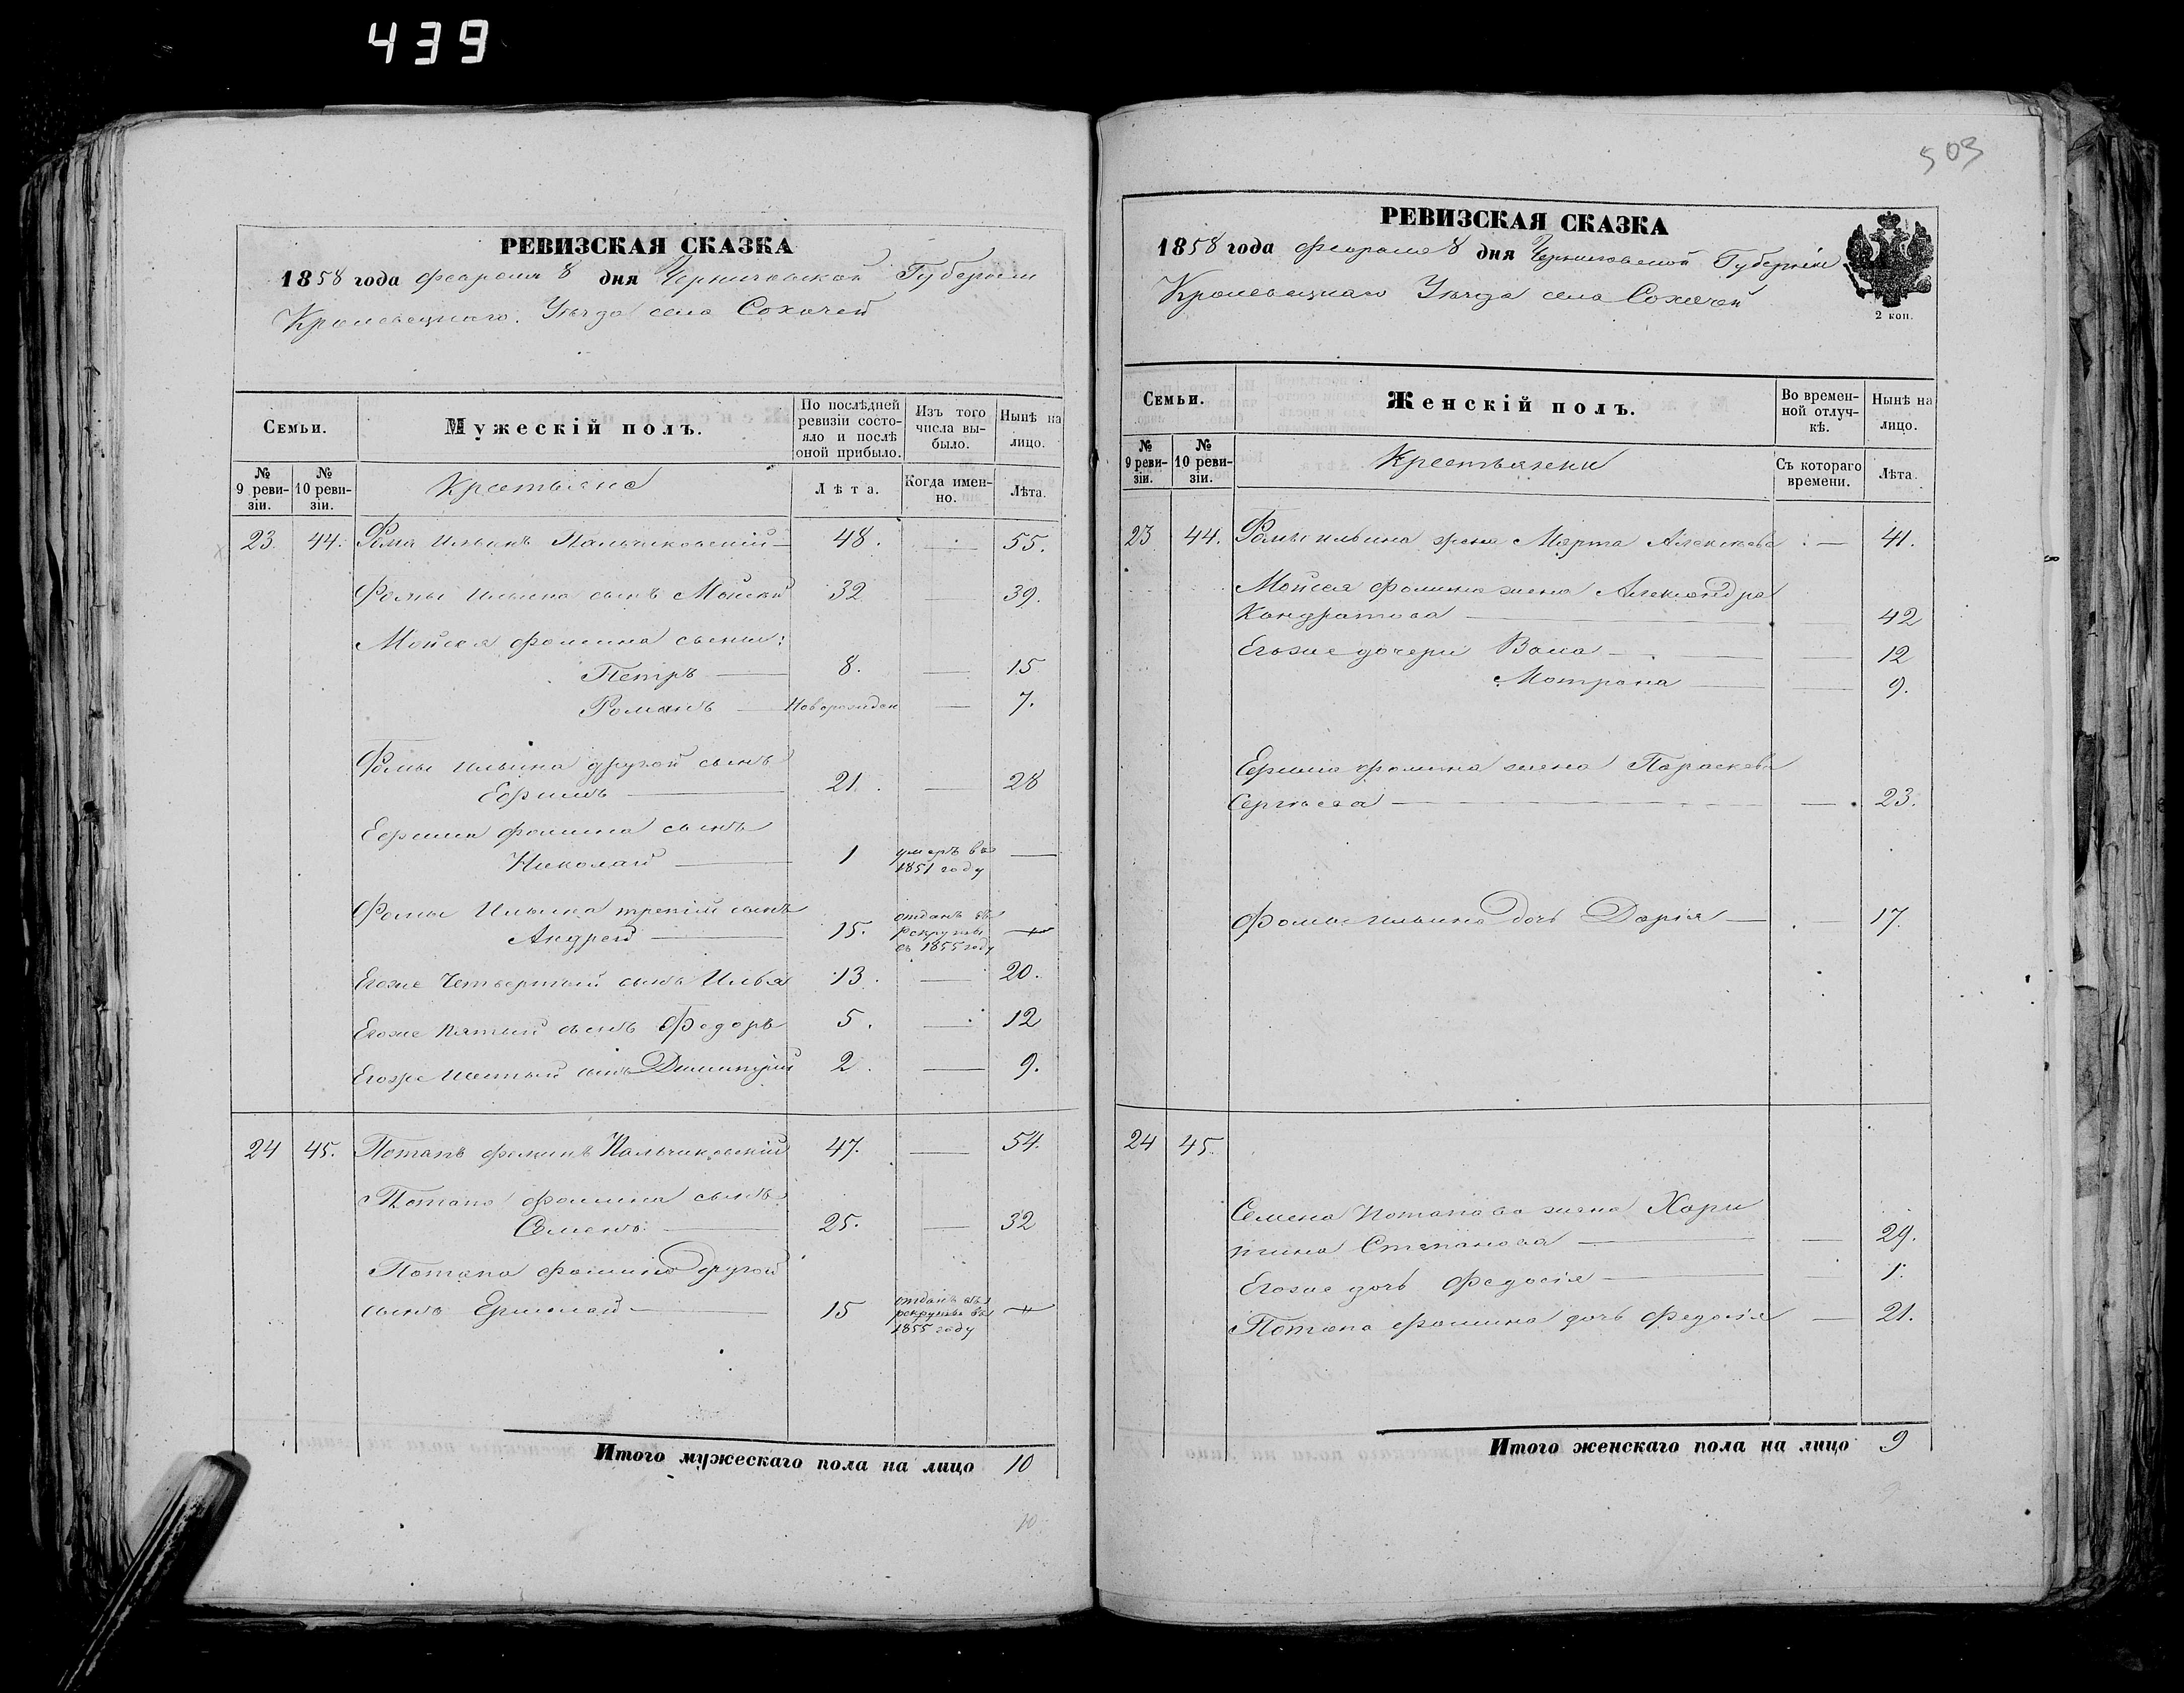 439
РЕВИЗСКАЯ СКАЗКА
1858 года февраля 8 дня Черниговской Губернии
Кролевецкаго Уѣзда села Сохачей
Семьи.
Мужескій полъ.
По послѣдней ревизіи состояло и послѣ оной прибыло.
Изъ того числа выбыло.
Нынѣ на лицо.
№ 9 ревизіи.
№ 10 ревизіи.
Крестьяне
Лѣта.
Когда именно.
Лѣта.
23. 44. Фома Ильинъ Пальчиковскій 48. — 55.
Фомы Ильина сынъ Мойсей 32 — 39.
Мойсея Фомина сыны:
Петръ — 8. — 15
Романъ — Новорожден — 7.
Фомы Ильина другой сынъ
Ефимъ — 21. — 28
Ефима Фомина сынъ
Николай — 1 умеръ въ 1851 году —
Фомы Ильина третій сынъ
Андрей — 15. отданъ въ рекруты въ 1855 году —
Егоже Четвертый сынъ Илья 13. — 20.
Егоже пятый сынъ Федоръ 5. — 12
Егоже шестый сынъ Димитрій 2. — 9.
24 45. Потапъ Фоминъ Пальчиковскій 47. — 54.
Потапа Фомина сынъ
Семенъ — 25. — 32
Потапа Фомина другой
сынъ Ермолай — 15 отданъ въ рекруты въ 1855 году —
Итого мужескаго пола на лицо 10
10
503
РЕВИЗСКАЯ СКАЗКА
1858 года февраля 8 дня Черниговской Губерніи
Кролевецкаго Уѣзда села Сохачей
2 коп.
Семьи.
Женскій полъ.
Во временной отлучкѣ.
Нынѣ на лицо.
№ 9 ревизіи.
№ 10 ревизіи.
Крестьянки
Съ котораго времени.
Лѣта.
23 44. Фомы Ильина жена Марта Алексѣева — 41.
Мойсея Фомина жена Александра
Кондратова — 42
Егоже дочери Васа — 12
Мотрона — 9.
Ефима Фомина жена Параскева
Сергѣева — 23.
Фомы Ильина дочь Дарія — 17.
24 45.
Семена Потапова жена Хари
тина Степанова — 29.
Егоже дочь Федосія — 1.
Потапа Фомина дочь Федосія — 21.
Итого женскаго пола на лицо 9
9